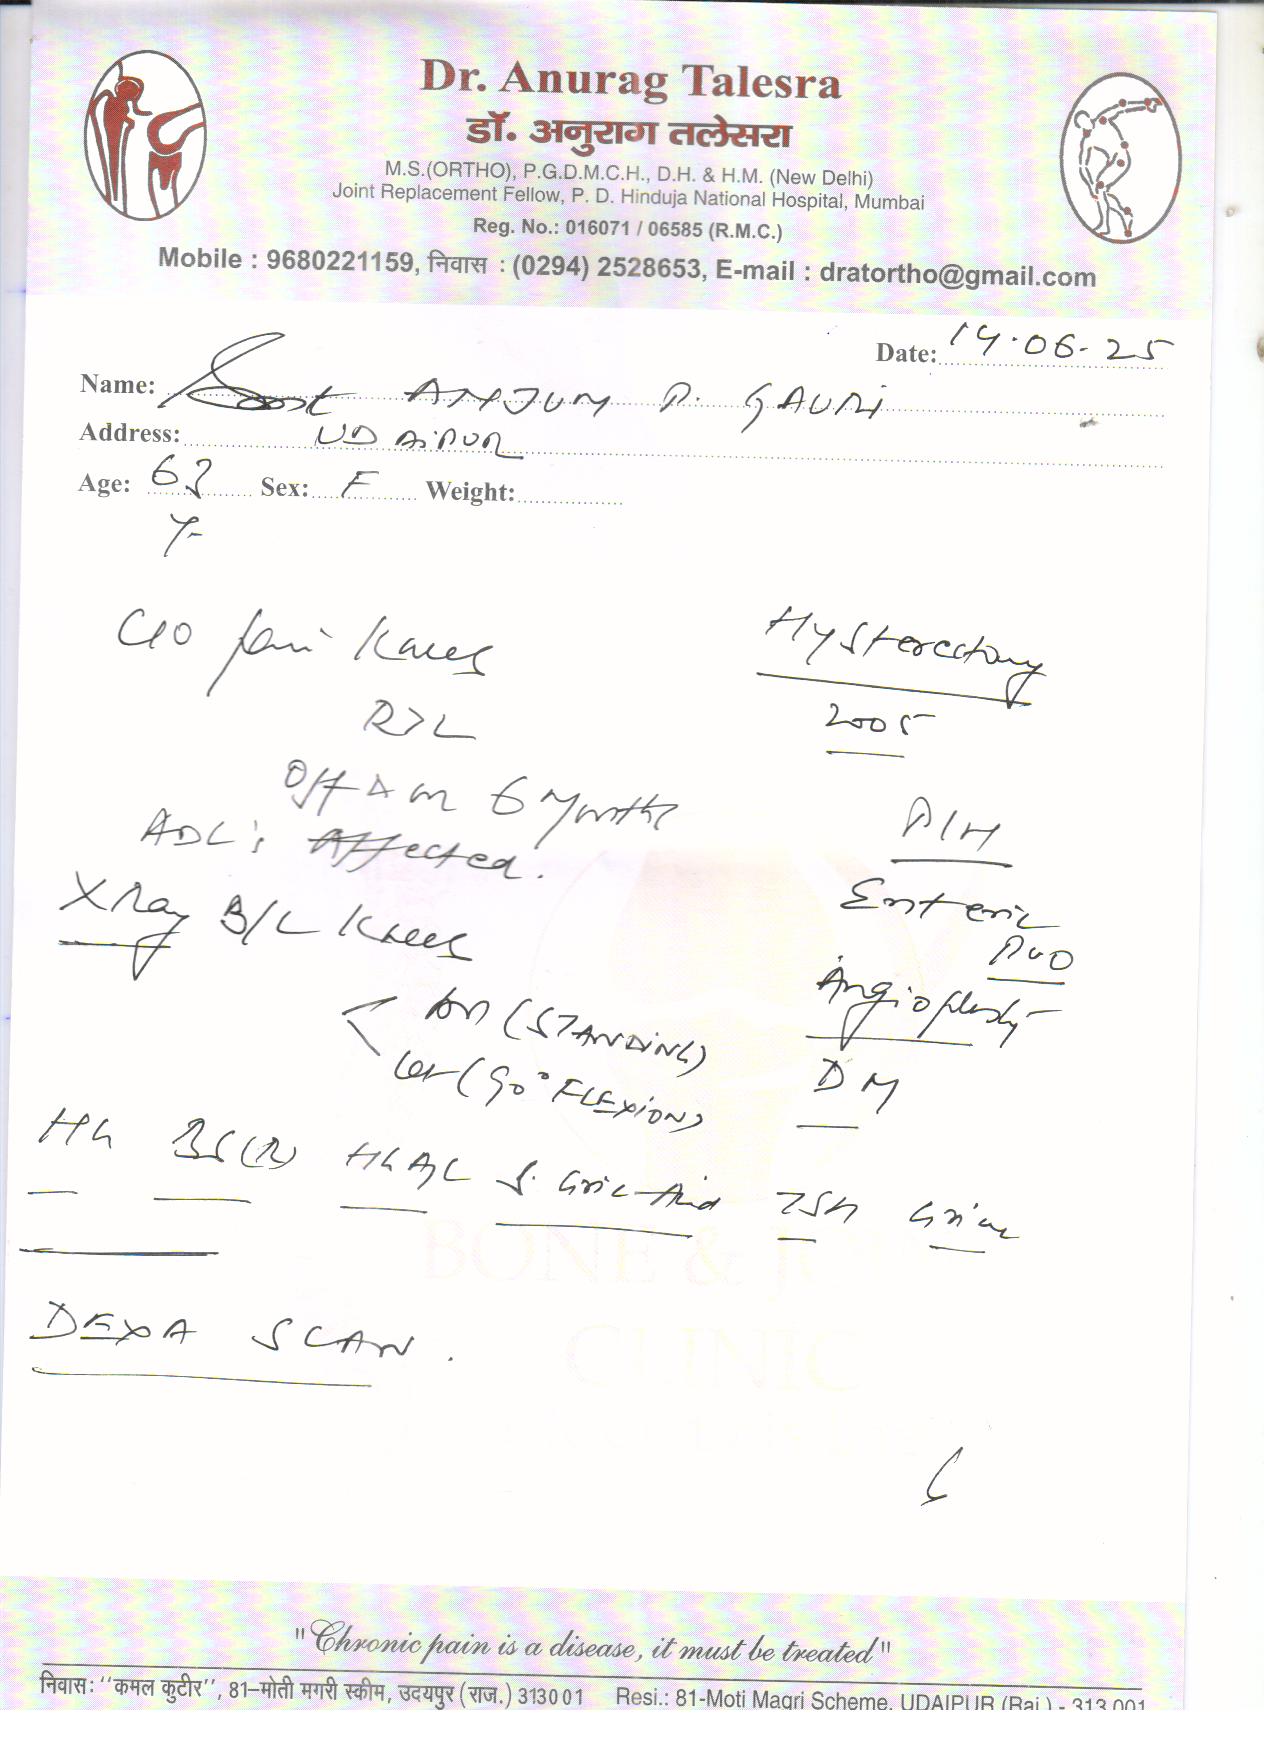 Dr. Anurag Talesra
डॉ. अनुराग तलेसरा
M.S.(ORTHO), P.G.D.M.C.H., D.H. & H.M. (New Delhi)
Joint Replacement Fellow, P. D. Hinduja National Hospital, Mumbai
Reg. No.: 016071 / 06585 (R.M.C.)
Mobile : 9680221159, निवास : (0294) 2528653, E-mail : dratortho@gmail.com
Date: 14.06.25
Name: ANJUM P. GAURI
Address: UDAIPUR
Age: 63 Sex: F Weight:
Y-
C/O Pain Knees
R>L
Off & on 6 Months
ADL's Affected.
X Ray B/L Knees
(STANDING)
Lat (90° FLEXION)
Hysterectomy
2005
P/H
Enteric
PUO
Angioplasty
DM
TSH
DEXA SCAN.
BONE & JO
CLINIC
"Chronic pain is a disease, it must be treated"
निवास: "कमल कुटीर", 81-मोती मगरी स्कीम, उदयपुर (राज.) 313001 Resi.: 81-Moti Magri Scheme, UDAIPUR (Raj.) - 313 001